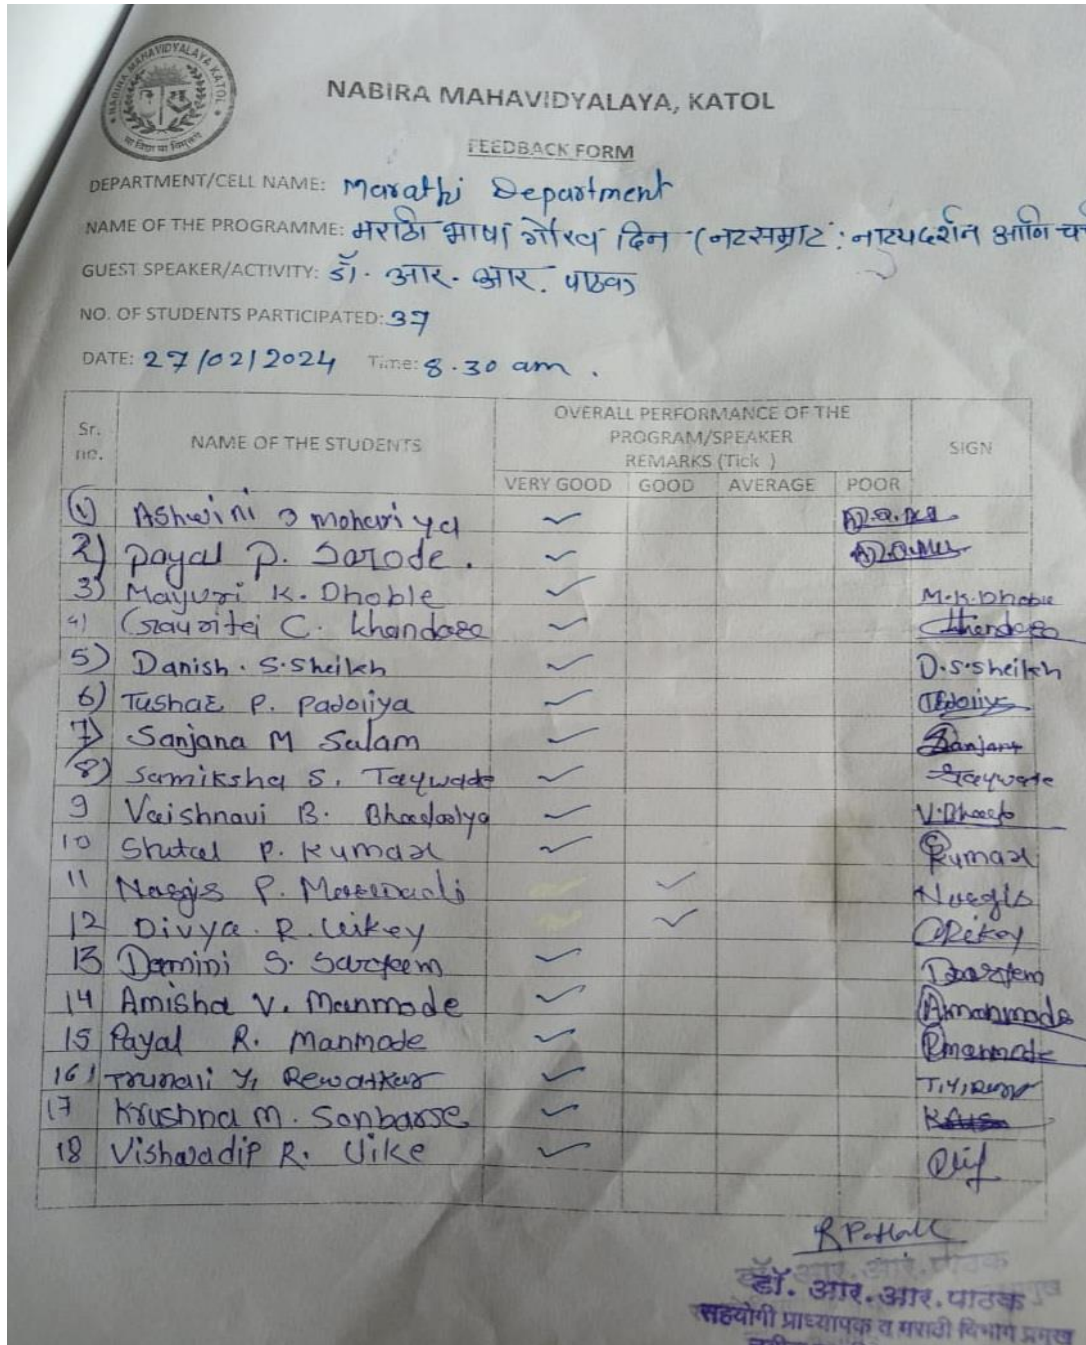 NABIRA MAHAVIDYALAYA KATOL
NABIRA MAHAVIDYALAYA, KATOL
FEEDBACK FORM
DEPARTMENT/CELL NAME: Marathi Department
NAME OF THE PROGRAMME: मराठी भाषा गौरव दिन (नटसम्राट : नाट्यदर्शन आणि
GUEST SPEAKER/ACTIVITY: डॉ. आर. आर. पाठक
NO. OF STUDENTS PARTICIPATED: 37
DATE: 27/02/2024 Time: 8.30 am.
Sr. no. NAME OF THE STUDENTS OVERALL PERFORMANCE OF THE PROGRAM/SPEAKER REMARKS (Tick ) SIGN
VERY GOOD GOOD AVERAGE POOR
1) Ashwini J Mohariya ✓
2) Payal P. Sarode. ✓
3) Mayuri K. Dhoble ✓ M.K.Dhoble
4) Gauritai C. Khandase ✓
5) Danish. S. Sheikh ✓ D.S.Sheikh
6) Tushar P. Padoliya ✓
7) Sanjana M Salam ✓ Sanjana
8) Samiksha S. Taywade ✓ Taywade
9 Vaishnavi B. ✓
10 Shital P. Kumar ✓ Kumar
11 Nargis P. ✓ Nargis
12 Divya. R. Uikey ✓
13 Damini S. ✓
14 Amisha V. Manmode ✓ Amanmode
15 Payal R. Manmode ✓ Pmanmode
16) Trunali Y. Rewatkar ✓
17 Krushna M. Sonbarse ✓
18 Vishwadip R. Uike ✓
डॉ. आर. आर. पाठक
सहयोगी प्राध्यापक व मराठी विभाग प्रमुख